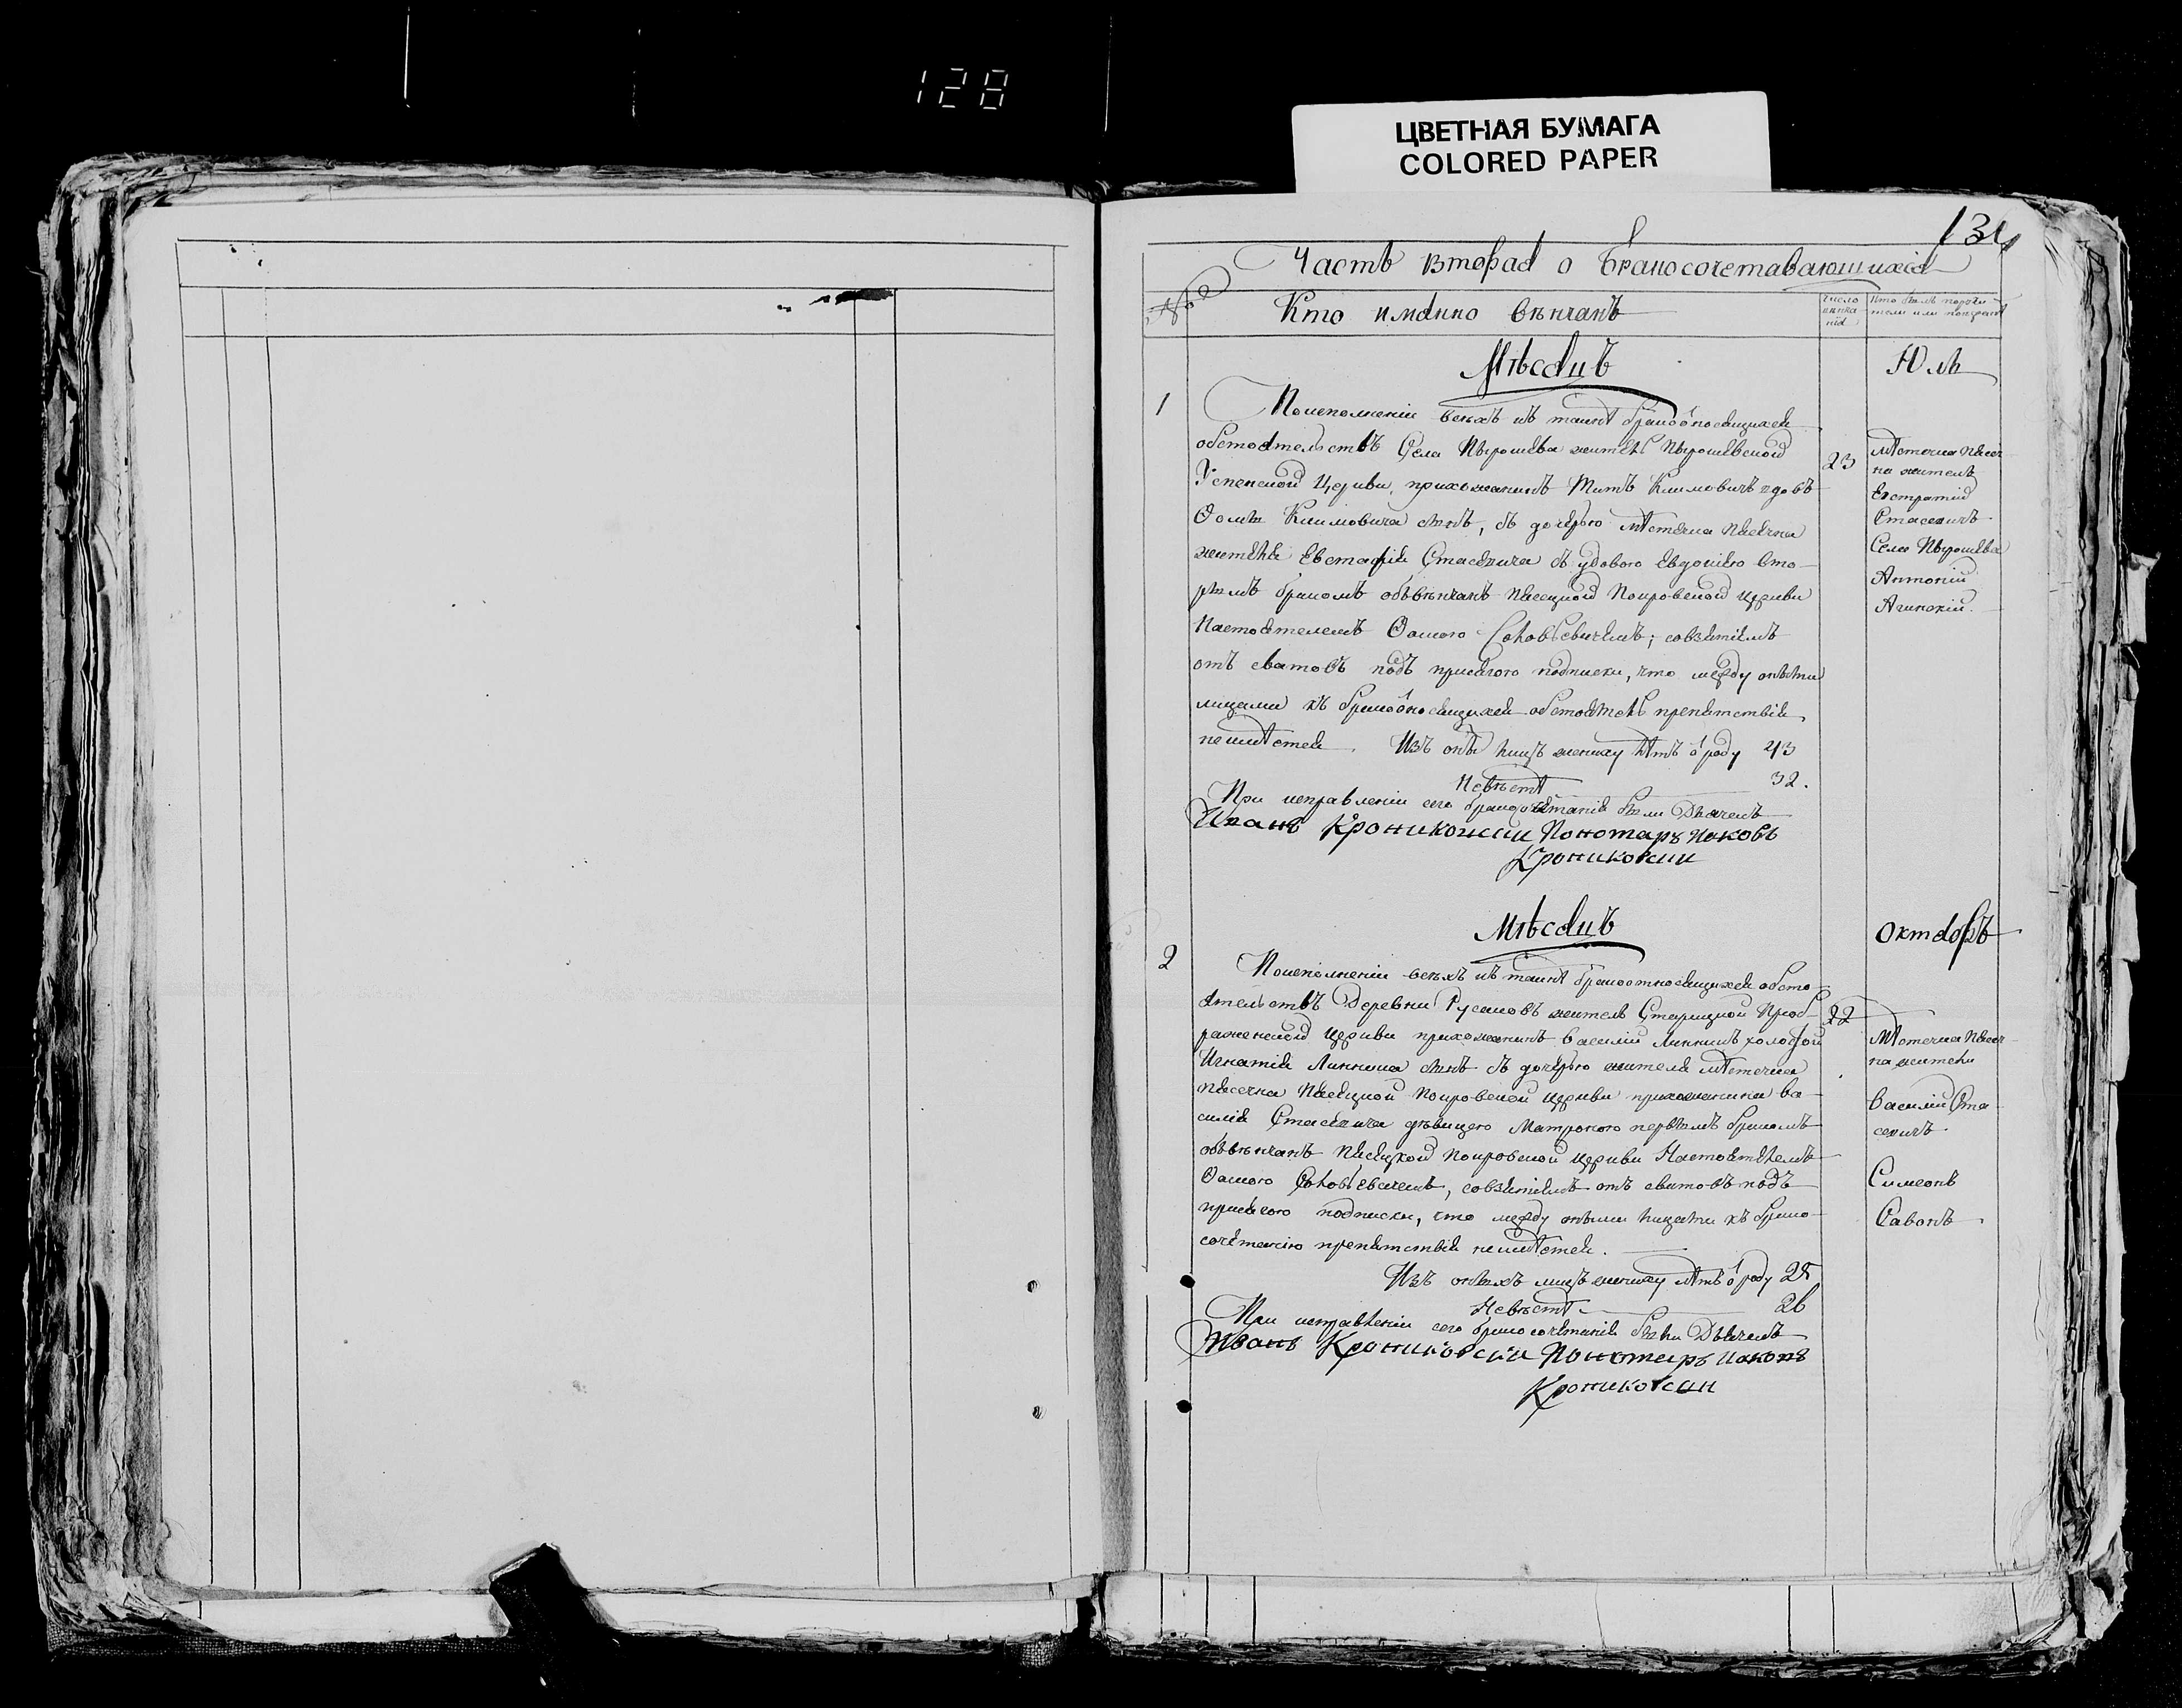 128
ЦВЕТНАЯ БУМАГА
COLORED PAPER
134
Часть вторая о бракосочетавающихся
№
Кто имянно вѣнчанъ
Число вѣнчанія
Кто былъ поручители или поезжане
Мѣсяцъ
Юль
1
Поисполненіи всѣхъ къ таинѣ бракоотносящихся
обстоятельствъ Села Пырошева житель Пырошевской
Успенской Церкви, прихожанинъ Титъ Климовичъ вдовъ
Ѳомы Климовича сынъ, съ дочерью мѣстечка Пасечна
жителя Евстафія Стасевича съ удовою Евдокіею вто-
рымъ бракомъ обвѣнчанъ Пасецкой Покровской церкви
Настоятелемъ Ѳомою Соловьевичемъ; совзятіемъ
отъ сватовъ подъ присягою подписки, что между оными
лицами къ бракоотносящихся обстоятель препятствія
неимѣется. Изъ оны лицъ жениху лѣтъ о роду 43
Невѣстѣ 32.
При исправленіи сего бракосочетанія были Дьячекъ
Иванъ Крониковскии Пономаръ Иаковъ
Крониковски
23
жителъ
Евстратій
Стасевичъ
Села Пырошева
Антоній
Мѣсяцъ
Октябрь
2
Поисполненіи всѣхъ къ таинѣ бракоотносящихся обсто-
ятельствъ Деревни Русаковъ житель Старицкой Преоб-
раженской Церкви прихожанинъ Василій холостой
Игнатія сынъ съ дочерью жителя мѣстечка
Пасечна Пасецкой Покровской церкви прихожанина Ва-
силія Стасевича дѣвицею Матроною первымъ бракомъ
обвѣнчанъ Пасецкой Покровской церкви Настоятелемъ
Ѳомою Соловьевичемъ, совзятіемъ отъ сватовъ подъ
присягою подписки, что между оными лицами къ брако-
сочетанію препятствія неимѣется.
Изъ оныхъ лицъ жениху лѣтъ о роду 25
Невѣстѣ 26
При исправленіи сего бракосочетанія были Дьячекъ
Иванъ Крониковскии Пономаръ Иаковъ
Крониковски
22
Мѣстечка Пасеч-
на жители
Василій Ста-
севичъ
Симеонъ